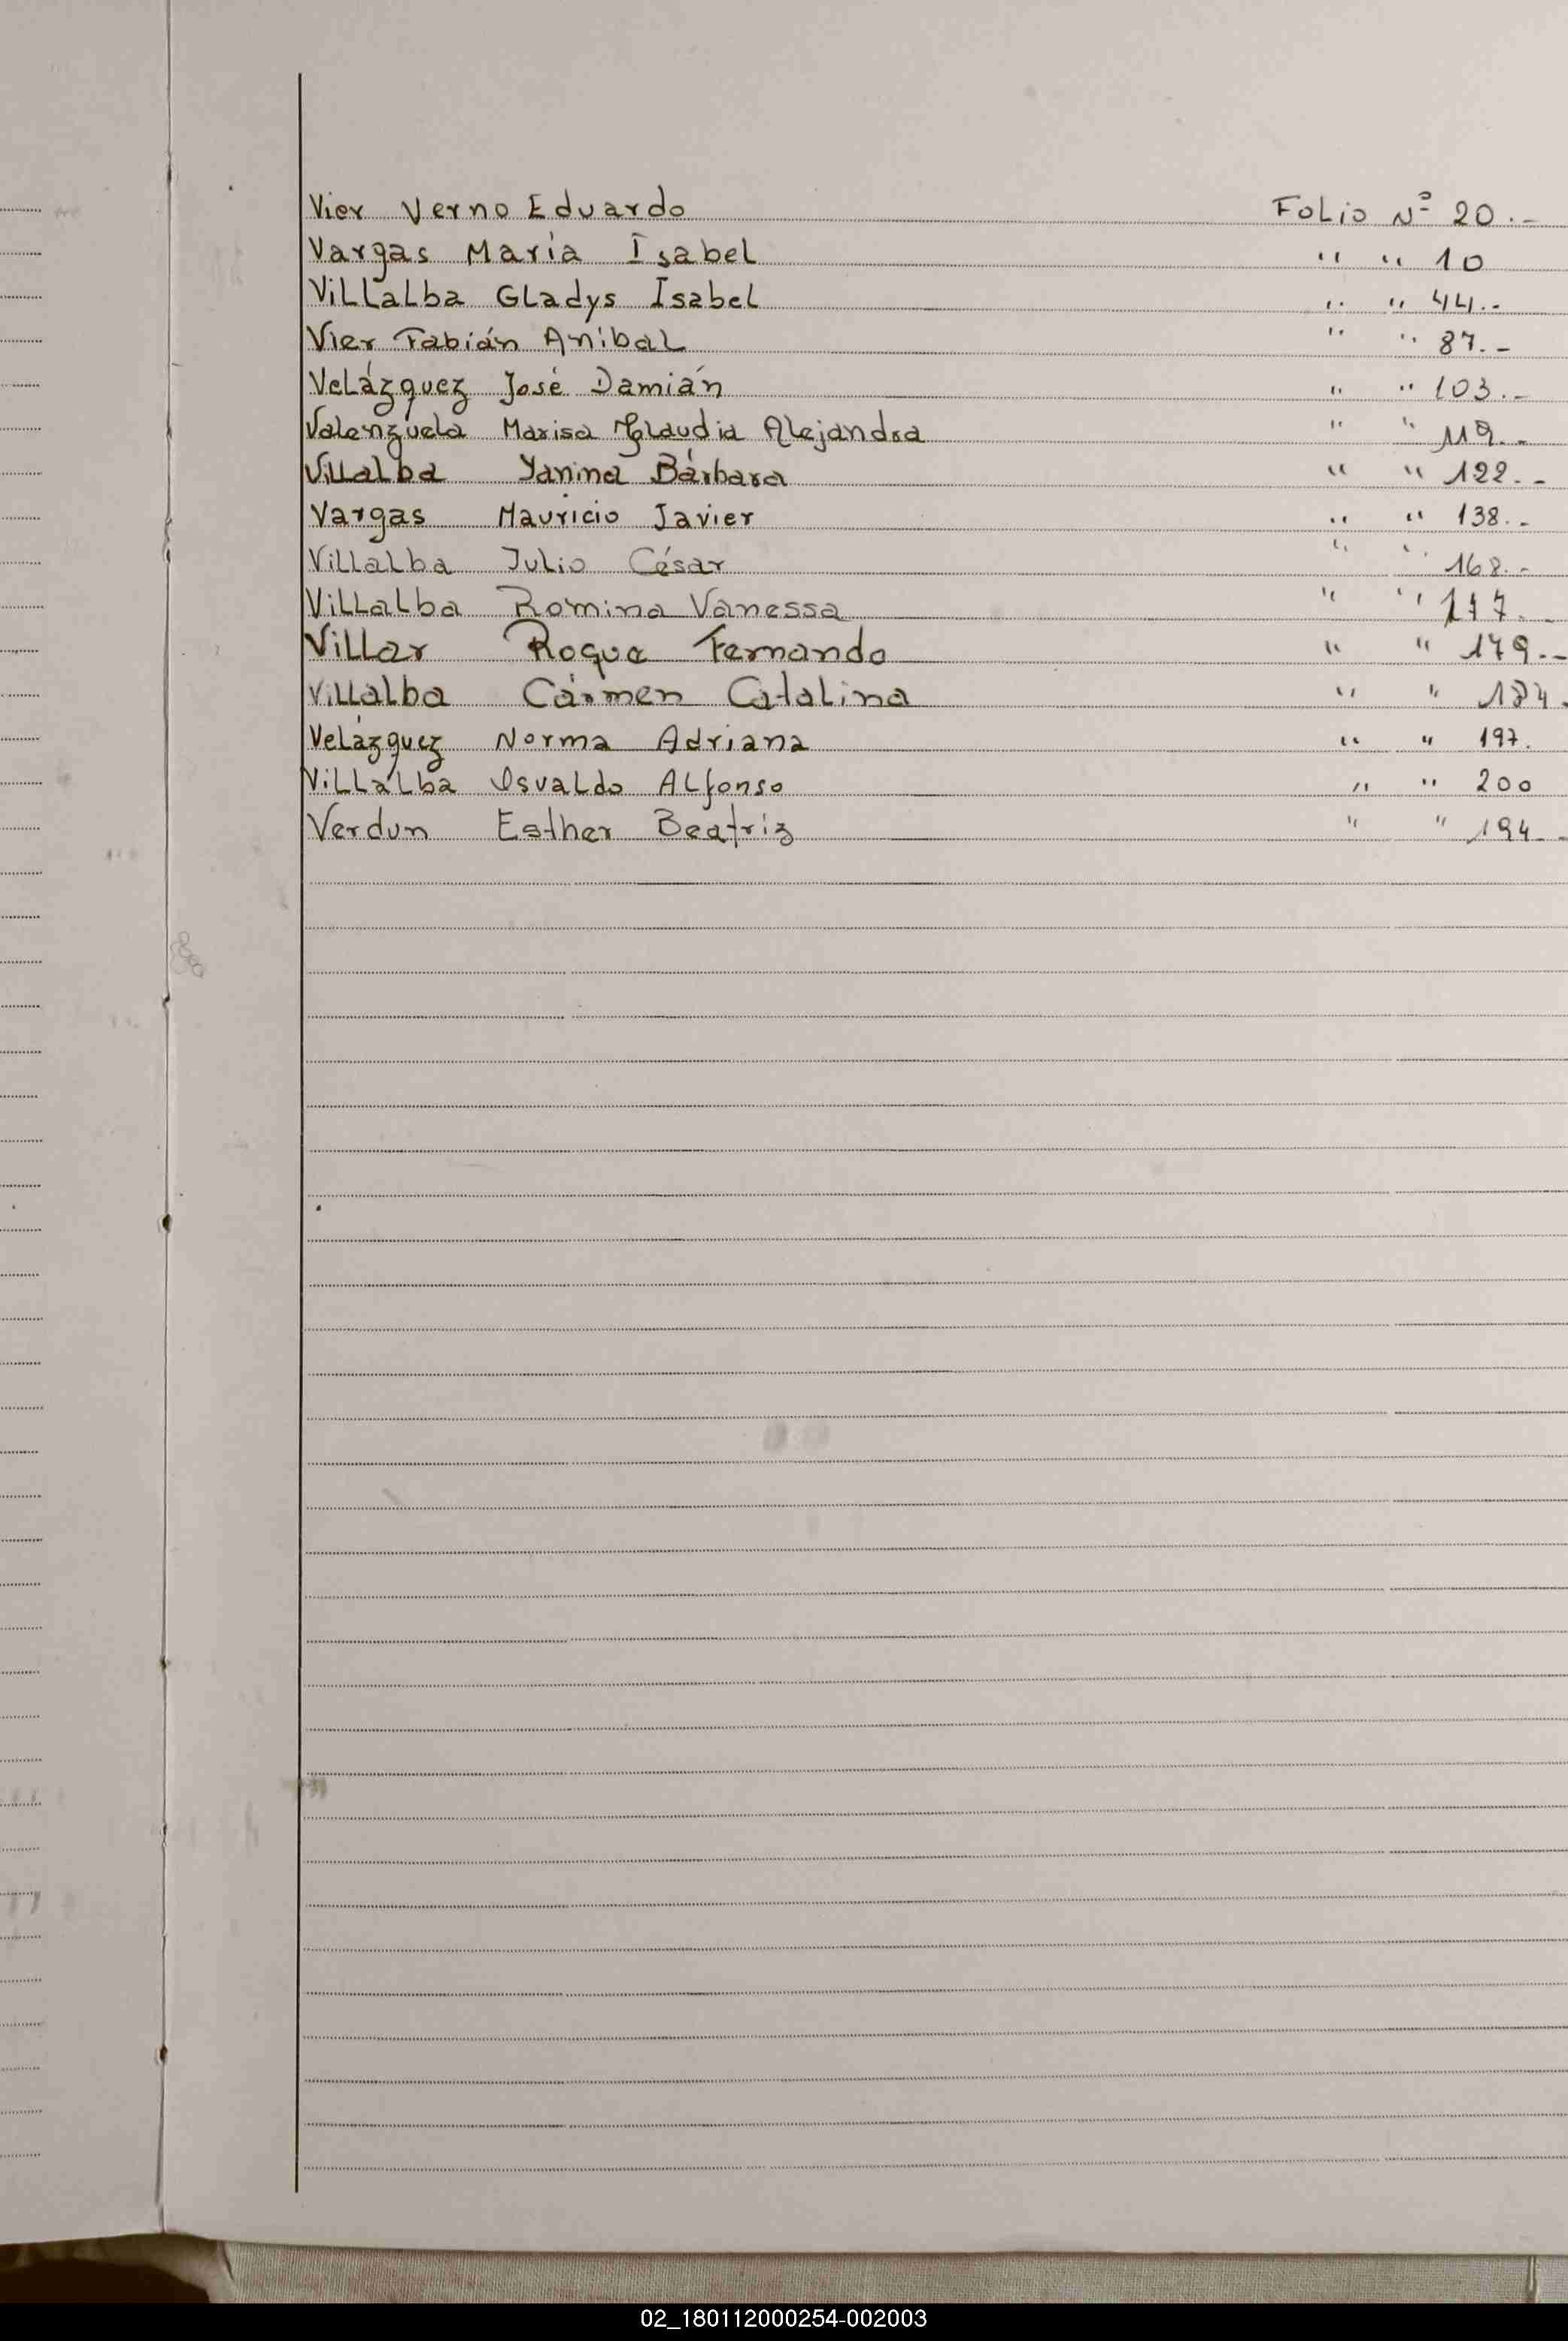 Vier Verno Eduardo Folio Nº 20.-
Vargas María Isabel " " 10
Villalba Gladys Isabel " " 44.-
Vier Fabián Aníbal " " 87.-
Velázquez José Damián " " 103.-
Valenzuela Marisa Claudia Alejandra " " 119.-
Villalba Yanina Bárbara " " 122.-
Vargas Mauricio Javier " " 138.-
Villalba Julio César " " 168.-
Villalba Romina Vanessa " "
Villar Roque Fernando " " 179.-
Villalba Cármen Catalina " "
Velázquez Norma Adriana " " 197.
Villalba Osvaldo Alfonso " " 200
Verdun Esther Beatriz " " 194.-
02_180112000254-002003